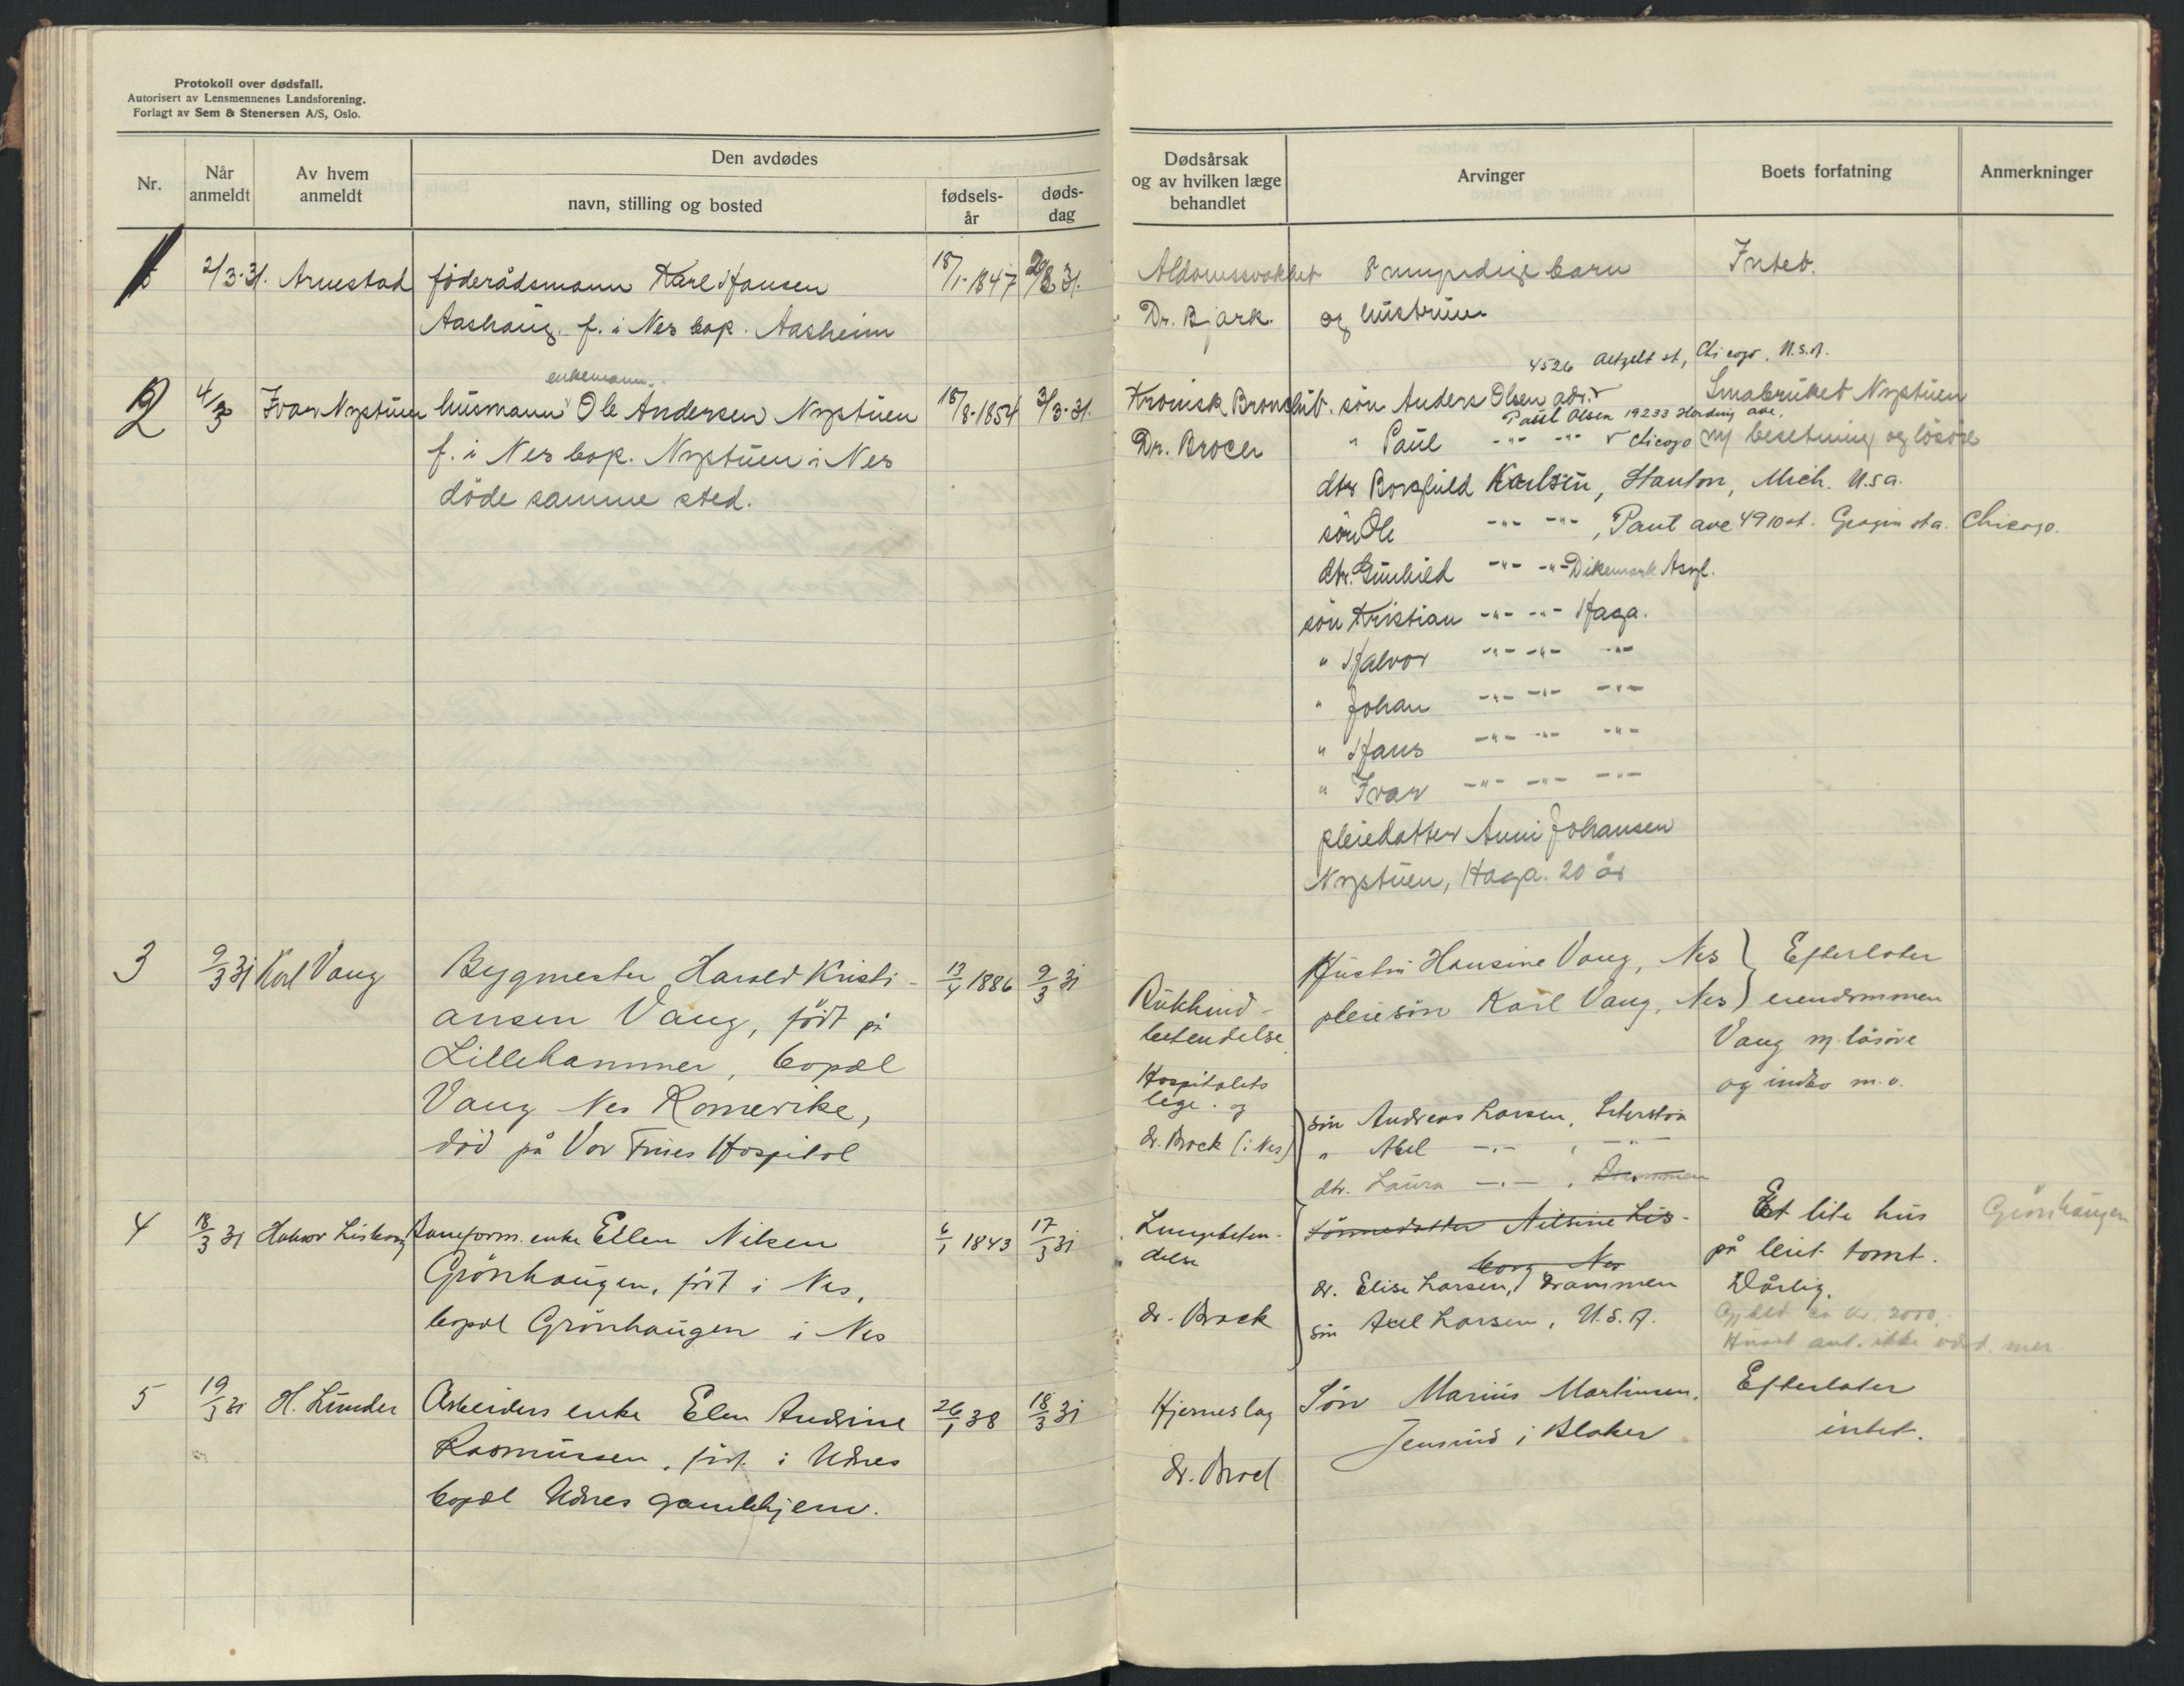 Protokoll over dødsfall.
Autorisert av Lensmennenes Landsforening.
Forlagt av Sem & Stenersen A/S, Oslo.
Nr.
Når anmeldt
Av hvem anmeldt
Den avdødes
navn, stilling og bosted
fødsels-år
døds-dag
1 2/3-31. Arnestad föderådsmann Karl Hansen 18/1-1847 31.
Aashaug. f. i Nes bop. Aasheim
enkemann
2 4/3 Ivar Nystuen husmann Ole Andersen Nystuen 18/8-1854 3/3-31.
f. i Nes bop. Nystuen i Nes
döde samme sted.
3 9/3 31 Karl Vang Bygmester Harald Kristi- 13/4 1886 9/3 31
ansen Vang, född på
Lillehammer, bopæl
Vang Nes Romerike,
död på Vor Frues Hospital
4 18/3 31 enke Ellen Nilsen 6/1 1843 17/3 31
Grönhaugen, född i Nes,
bopæl Grönhaugen i Nes
5 19/3 31 H. Lunder Arbeiders enke Elen Andrine 26/1 38 18/3 31
Rasmussen, född i Udnes
bopæl Udnes gamlehjem.
Dødsårsak
og av hvilken læge
behandlet
Arvinger
Boets forfatning
Anmerkninger
Aldomssvakhet 8 myndige barn Intet.
Dr. Bjørk. og hustruen
4526 st, Chicago. U.S.A.
Kronisk Bronchit. sön Anders Olsen adr. Smabruket Nystuen
Paul Olsen 19233 Harding ave.
Dr. Brocer " Paul -"- -"- Chicago m/ besetning og lösöre
dtr Borghild Karlsen, Stanton, Mich. U.S.a.
sön Ole -"- -"-, ave 4910 st. sta. Chicago.
dtr. Gunhild -"- -"- Dikemark Asyl.
sön Kristian -"- -"- Haga.
" Halvor -"- -"- -"-
" Johan -"- -"- -"-
" Hans -"- -"- -"-
" Ivar -"- -"- -"-
pleiedatter Anni Johansen
Nystuen, Haga. 20 år
Hustru Hansine Vang, Nes } Efterlater
pleiesön Karl Vang, Nes } eiendommen
Vang m. lösöre
og indbo m.v.
betendelse
Hospitalets
lege. og
dr. Brock (i Nes)
sön Andreas Larsen,
" Abel -"- , -"-
dtr. Laura -"- , Drammen
Lungebeten-
delse
dr. Brock
Sönnedatter Nilsine Lis-
borg Nes
dr. Elise Larsen, Drammen
sön Axel Larsen, U.S.A.
Et lite hus
på leiet tomt.
Dårlig.
Gjeld ca kr. 2000,-
Huset ant. ikke værd. mer
Grönhaugen
Hjerneslag Sön Marius Martinsen. Efterlater
i Blaker intet.
dr. Brock